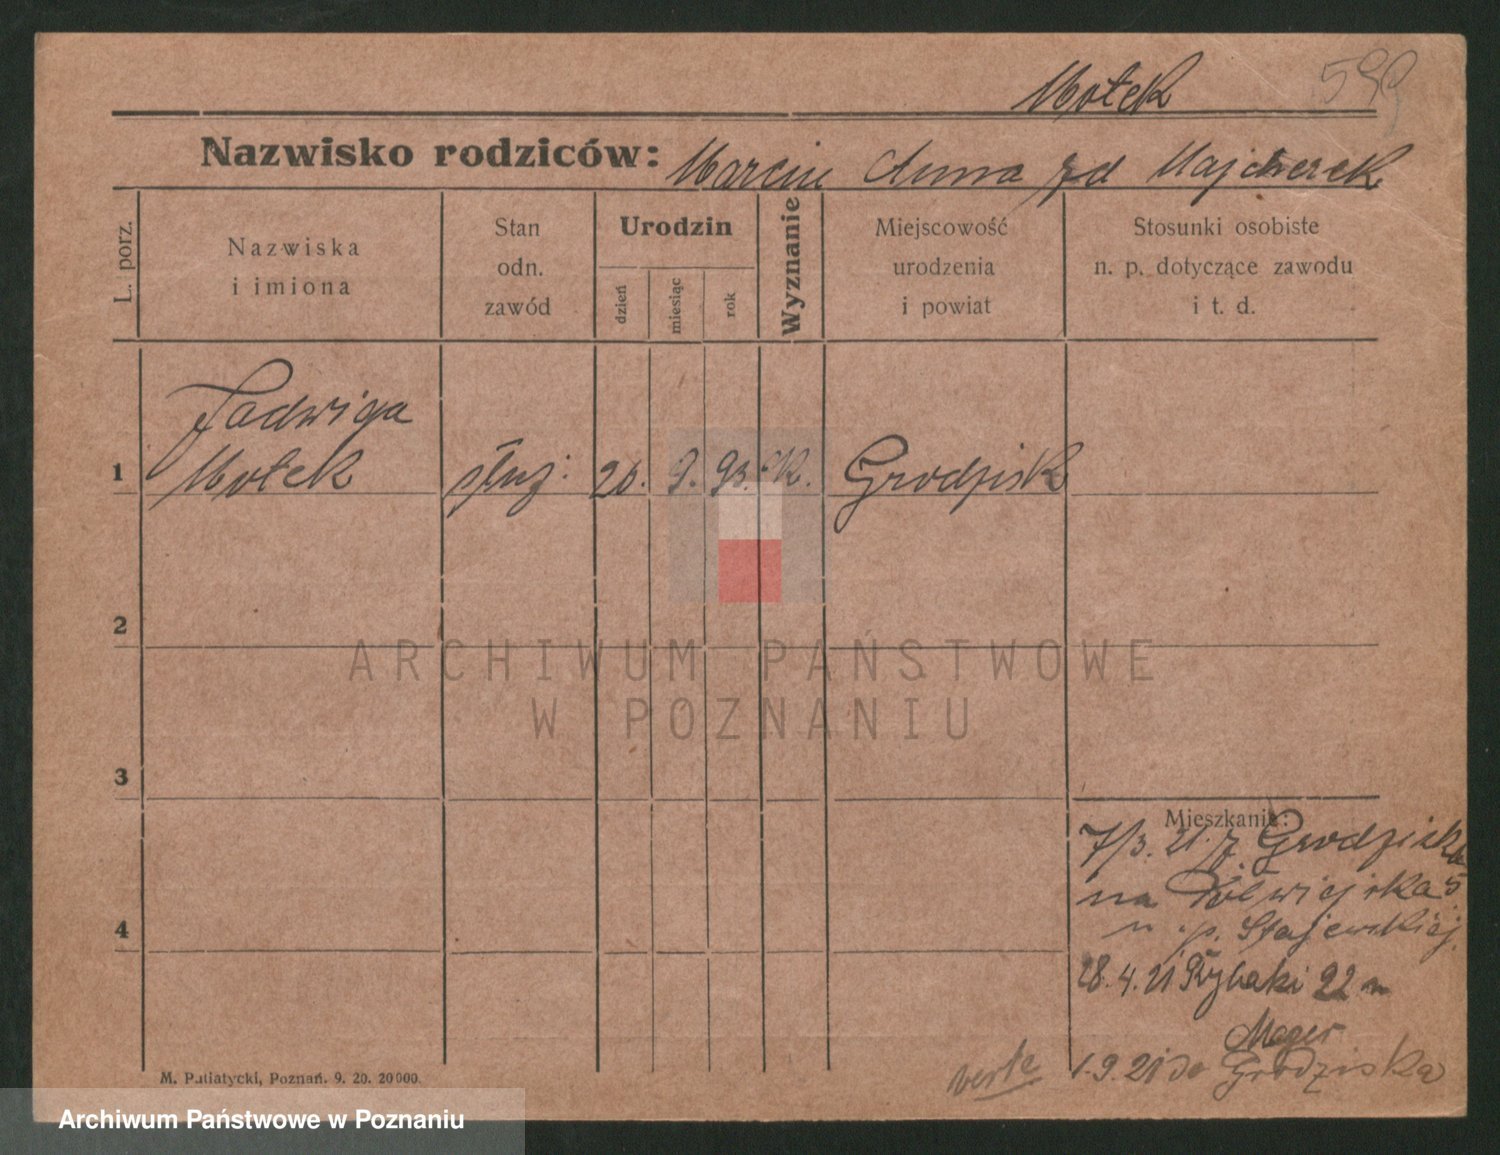 Motek 599
Nazwisko rodziców: Marcin Anna zd Majcherek
L. porz.
Nazwiska
i imiona
Stan
odn.
zawód
Urodzin
dzień
miesiąc
rok
Wyznanie
Miejscowość
urodzenia
i powiat
Stosunki osobiste
n. p. dotyczące zawodu
i t. d.
Jadwiga
1 Motek służ: 26. 9. 93. K. Grodzisk
2
3
4
ARCHIWUM PAŃSTWOWE
W POZNANIU
Mieszkanie:
7/3. 21. z Grodziska
na Półwiejska 5
u p. Stajewskiej
28.4.21 Rybaki 22 u
Mager
1.9.21 do Grodziska
verte
M. Putiatycki, Poznań. 9. 20. 20000.
Archiwum Państwowe w Poznaniu